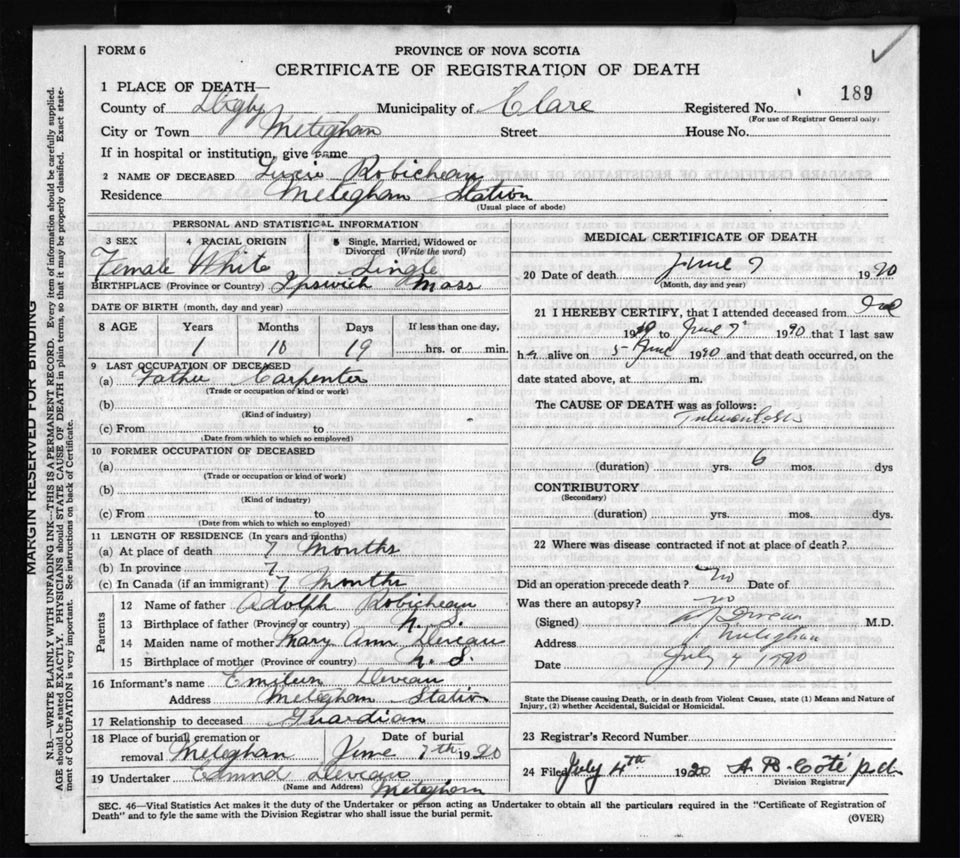 FORM 6
PROVINCE OF NOVA SCOTIA
CERTIFICATE OF REGISTRATION OF DEATH
1 PLACE OF DEATH—
County of Digby Municipality of Clare Registered No. 189
(For use of Registrar General only)
City or Town Meteghan Street House No.
If in hospital or institution, give name
2 NAME OF DECEASED Lucie Robicheau
Residence Meteghan Station
(Usual place of abode)
PERSONAL AND STATISTICAL INFORMATION
3 SEX 4 RACIAL ORIGIN 5 Single, Married, Widowed or Divorced (Write the word)
Female White Single
BIRTHPLACE (Province or Country) Ipswich Mass
DATE OF BIRTH (month, day and year)
8 AGE Years Months Days If less than one day,
1 10 19 hrs. or min.
9 LAST OCCUPATION OF DECEASED
(a) Father Carpenter
(Trade or occupation or kind or work)
(b)
(Kind of industry)
(c) From to
(Date from which to which so employed)
10 FORMER OCCUPATION OF DECEASED
(a)
(Trade or occupation or kind of work)
(b)
(Kind of industry)
(c) From to
(Date from which to which so employed)
11 LENGTH OF RESIDENCE (In years and months)
(a) At place of death 7 Months
(b) In province 7
(c) In Canada (if an immigrant) 7 Months
Parents
12 Name of father Adolph Robicheau
13 Birthplace of father (Province or country) N. S.
14 Maiden name of mother Mary Ann Deveau
15 Birthplace of mother (Province or country) N. S.
16 Informant's name Deveau
Address Meteghan Station
17 Relationship to deceased Guardian
18 Place of burial, cremation or removal Meteghan
Date of burial June 7th 1920
19 Undertaker Edmund Deveau
(Name and Address) Meteghan
MEDICAL CERTIFICATE OF DEATH
20 Date of death June 7 1920
(Month, day and year)
21 I HEREBY CERTIFY, that I attended deceased from
19 to June 7 1920 that I last saw
h alive on 5 June 1920 and that death occurred, on the
date stated above, at m.
The CAUSE OF DEATH was as follows:
Tuberculosis
(duration) yrs. 6 mos. dys
CONTRIBUTORY
(Secondary)
(duration) yrs. mos. dys.
22 Where was disease contracted if not at place of death?
Did an operation precede death? No Date of
Was there an autopsy? no
(Signed) M.D.
Address Meteghan
Date July 4 1920
State the Disease causing Death, or in death from Violent Causes, state (1) Means and Nature of
Injury, (2) whether Accidental, Suicidal or Homicidal.
23 Registrar's Record Number
24 Filed July 4th 1920 A. B. Coté
Division Registrar
SEC. 46—Vital Statistics Act makes it the duty of the Undertaker or person acting as Undertaker to obtain all the particulars required in the "Certificate of Registration of
Death" and to fyle the same with the Division Registrar who shall issue the burial permit.
(OVER)
MARGIN RESERVED FOR BINDING
N.B.—WRITE PLAINLY WITH UNFADING INK—THIS IS A PERMANENT RECORD. Every item of information should be carefully supplied.
AGE should be stated EXACTLY. PHYSICIANS should STATE CAUSE OF DEATH in plain terms, so that it may be properly classified. Exact state-
ment of OCCUPATION is very important. See instructions on back of Certificate.